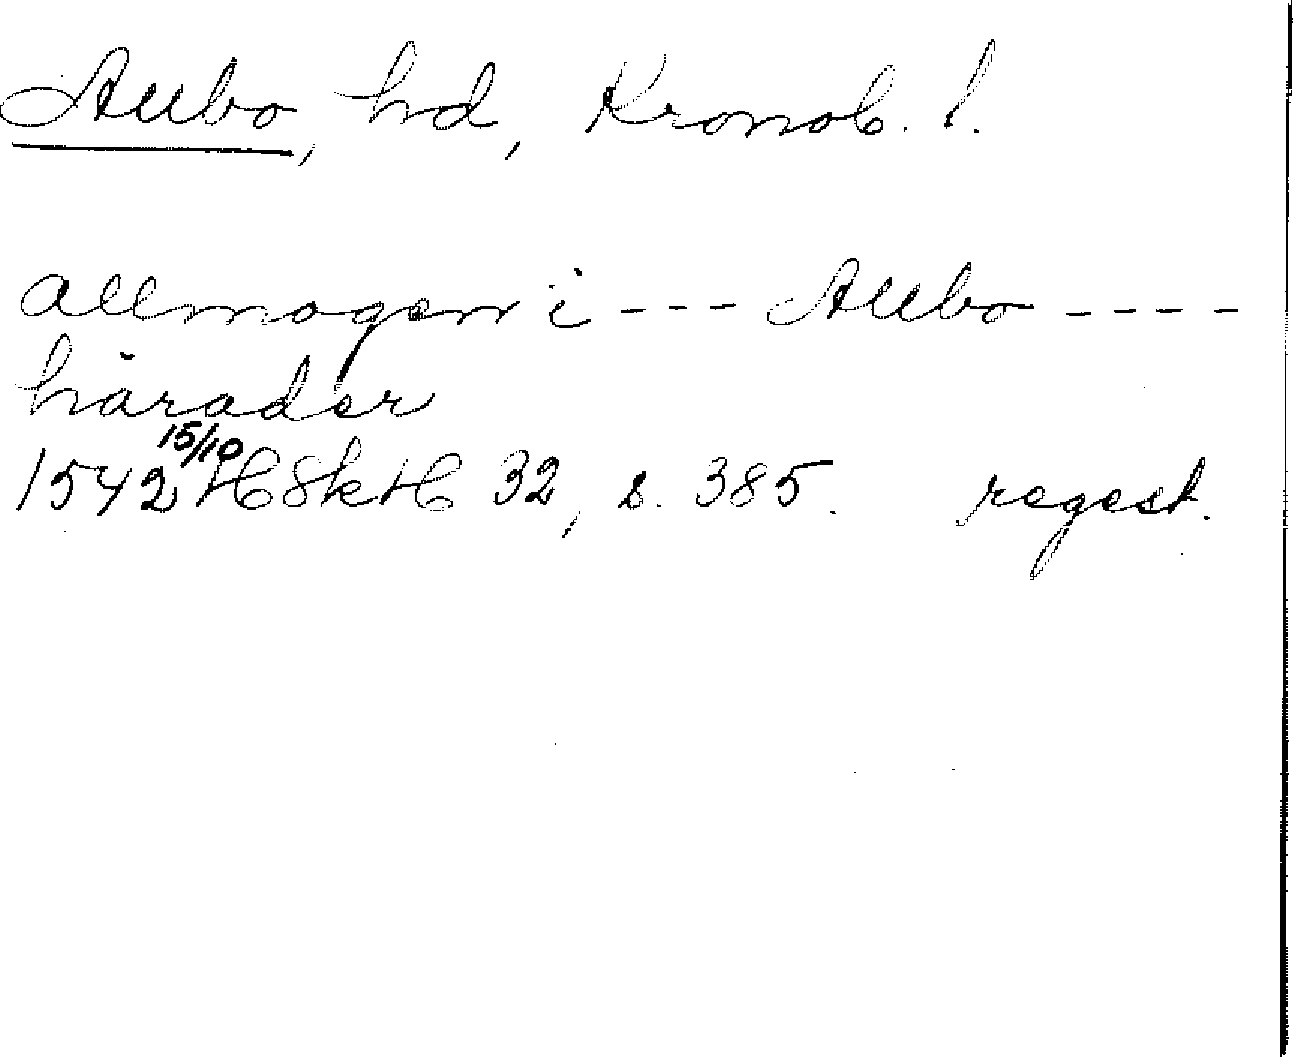 Allbo, hd, Kronob. l.
allmogen i --- Allbo ----
härader
1542 15/10 HSkH 32, s. 385. regest.